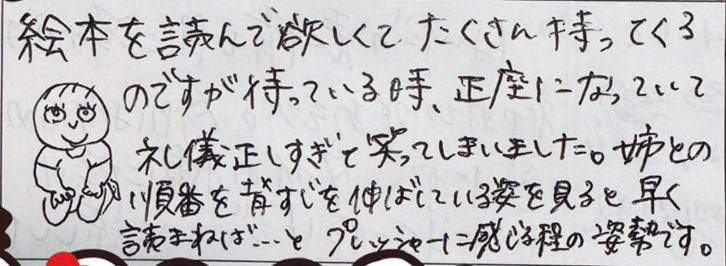 絵本を読んで欲しくて たくさん持ってくる
のですが待っている時、正座になっていて
礼儀正しすぎて笑ってしまいました。姉との
順番を背すじを伸ばしている姿を見ると早く
読まねば…と プレッシャーに感じる程の姿勢です。